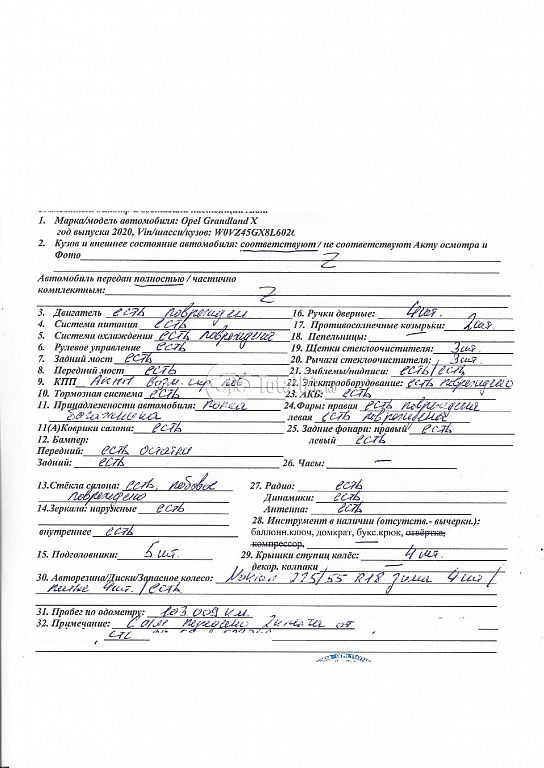 1. Марка/модель автомобиля: Opel Grandland X
год выпуска 2020, Vin/шасси/кузов: W0VZ45GX8L602
2. Кузов и внешнее состояние автомобиля: соответствуют / не соответствуют Акту осмотра и
Фото Z
Автомобиль передан полностью / частично
комплектным: Z
3. Двигатель есть поврежден
16. Ручки дверные: 4 шт.
4. Система питания есть
17. Противосолнечные козырьки: 2 шт.
5. Система охлаждения есть повреждена
18. Пепельницы: —
6. Рулевое управление есть
19. Щетки стеклоочистителя: 3 шт.
7. Задний мост есть
20. Рычаги стеклоочистителя: 3 шт.
8. Передний мост есть
21. Эмблемы/надписи: есть/есть
9. КПП АКПП возм.
22. Электрооборудование: есть повреждено
10. Тормозная система есть
23. АКБ: есть
11. Принадлежности автомобиля: полка
багажника
24.Фары: правая есть повреждена
левая есть повреждена
11(А)Коврики салона: есть
25. Задние фонари: правый есть
левый есть
12. Бампер:
Передний: есть остатки
Задний: есть
26. Часы: —
13.Стёкла салона: есть, лобовое
повреждено
27. Радио: есть
Динамики: есть
14.Зеркала: наружные есть
Антенна: есть
28. Инструмент в наличии (отсутств.- вычеркн.):
внутреннее есть
баллонн.ключ, домкрат, букс.крюк, отвёртка,
компрессор,
15. Подголовники: 5 шт.
29. Крышки ступиц колёс: 4 шт.
декор. колпаки —
30. Авторезина/Диски/Запасное колесо: Nokian 225/55 R18 зима 4 шт/
литые 4 шт. / есть
31. Пробег по одометру: 103 009 км
32. Примечание: 2 ключа от